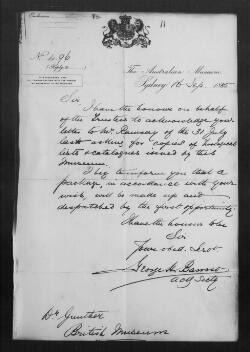 No. 496
The Australian Museum,
Sydney 16 Sep. 1885
Sir
I have the honour on behalf
of the Trustees to acknowledge your
letter to Mr. Ramsay of the 31 July
last asking for copies of
lists & catalogues issued by this
Museum.
I beg to inform you that a
package in accordance with your
wish will be made up and
despatched by the first opportunity
I have the honour to be
Sir
Your obed. Servt
Actg Secty
Dr. Gunther
British Museum